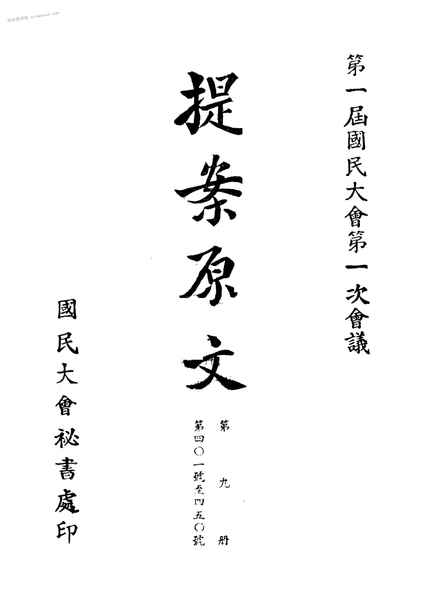 第一屆國民大會第一次會議
提案原文
第九册
第四〇一號至四五〇號
國民大會祕書處印